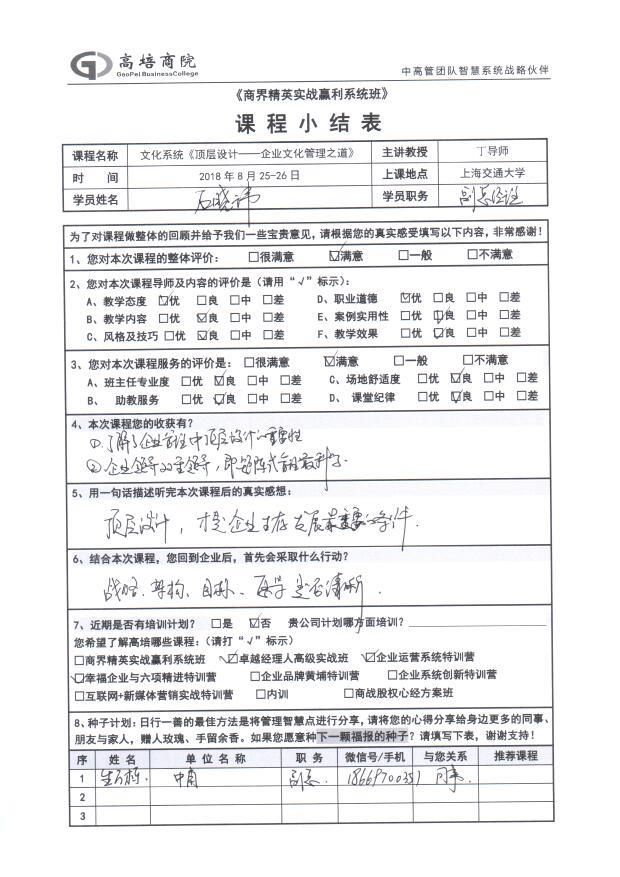 高培商院
GaoPei BusinessCollege
中高管团队智慧系统战略伙伴
《商界精英实战赢利系统班》
课程小结表
课程名称 文化系统《顶层设计——企业文化管理之道》 主讲教授 丁导师
时 间 2018年8月25-26日 上课地点 上海交通大学
学员姓名 石晓沛 学员职务 副总经理
为了对课程做整体的回顾并给予我们一些宝贵意见,请根据您的真实感受填写以下内容,非常感谢!
1、您对本次课程的整体评价: □很满意 ☑满意 □一般 □不满意
2、您对本次课程导师及内容的评价是(请用“√”标示):
A、教学态度 ☑优 □良 □中 □差 D、职业道德 ☑优 □良 □中 □差
B、教学内容 □优 ☑良 □中 □差 E、案例实用性 □优 ☑良 □中 □差
C、风格及技巧 □优 ☑良 □中 □差 F、教学效果 □优 ☑良 □中 □差
3、您对本次课程服务的评价是: □很满意 ☑满意 □一般 □不满意
A、班主任专业度 □优 ☑良 □中 □差 C、场地舒适度 □优 ☑良 □中 □差
B、 助教服务 □优 ☑良 □中 □差 D、 课堂纪律 □优 ☑良 □中 □差
4、本次课程您的收获有?
①.了解了企业管理中顶层设计的重要性
②.企业领导的重领导,即矩阵式管理最科学.
5、用一句话描述听完本次课程后的真实感想:
顶层设计,才是企业生存发展最重要的条件.
6、结合本次课程,您回到企业后,首先会采取什么行动?
战略、架构、目标、 是否清晰.
7、近期是否有培训计划? □是 ☑否 贵公司计划哪方面培训?
您希望了解高培哪些课程:(请打“√”标示)
□商界精英实战赢利系统班 ☑卓越经理人高级实战班 ☑企业运营系统特训营
☑幸福企业与六项精进特训营 □企业品牌黄埔特训营 □企业系统创新特训营
□互联网+新媒体营销实战特训营 □内训 □商战股权心经方案班
8、种子计划:日行一善的最佳方法是将管理智慧点进行分享,请将您的心得分享给身边更多的同事、
朋友与家人,赠人玫瑰、手留余香。如果您愿意种下一颗福报的种子?请填写下表,谢谢支持!
序 姓 名 单 位 名 称 职 务 微信号/手机 与您关系 推荐课程
1 中南 副总 18669700351 同事
2
3